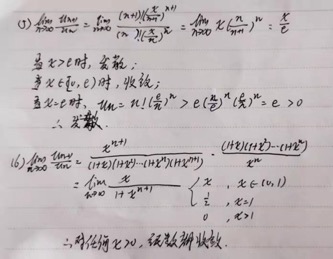 (5) lim_{n→∞} u_{n+1}/u_n = lim_{n→∞} (n+1)!(x/(n+1))^{n+1} / (n!(x/n)^n) = lim_{n→∞} x(n/(n+1))^n = x/e
当x>e时,发散;
当x∈(0,e)时,收敛;
当x=e时, u_n = n!(e/n)^n > e(n/e)^n(e/n)^n = e > 0
∴ 发散.
(6) lim_{n→∞} u_{n+1}/u_n = x^{n+1}/((1+x)(1+x²)⋯(1+x^n)(1+x^{n+1})) · ((1+x)(1+x²)⋯(1+x^n))/x^n
= lim_{n→∞} x/(1+x^{n+1}) { x , x∈(0,1)
1/2 , x=1
0 , x>1
∴对任何x>0, 级数都收敛.